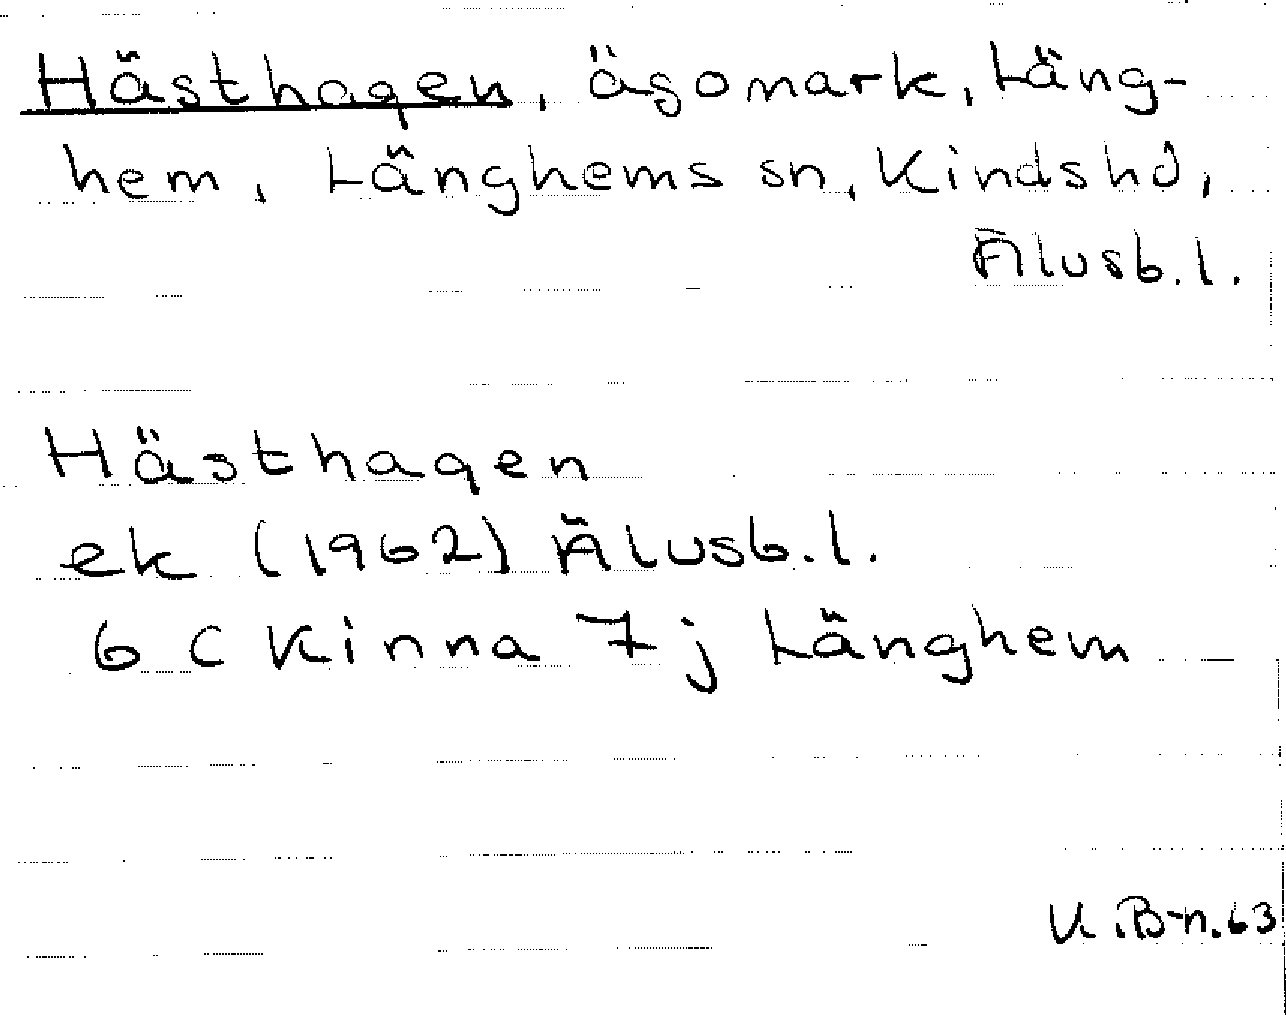 Hästhagen, ägomark, Läng-
hem, Länghems sn, Kinds hd,
Älvsb. l.
Hästhagen
ek (1962) Älvsb. l.
6 C Kinna 7 j Länghem
K.B-n. 63